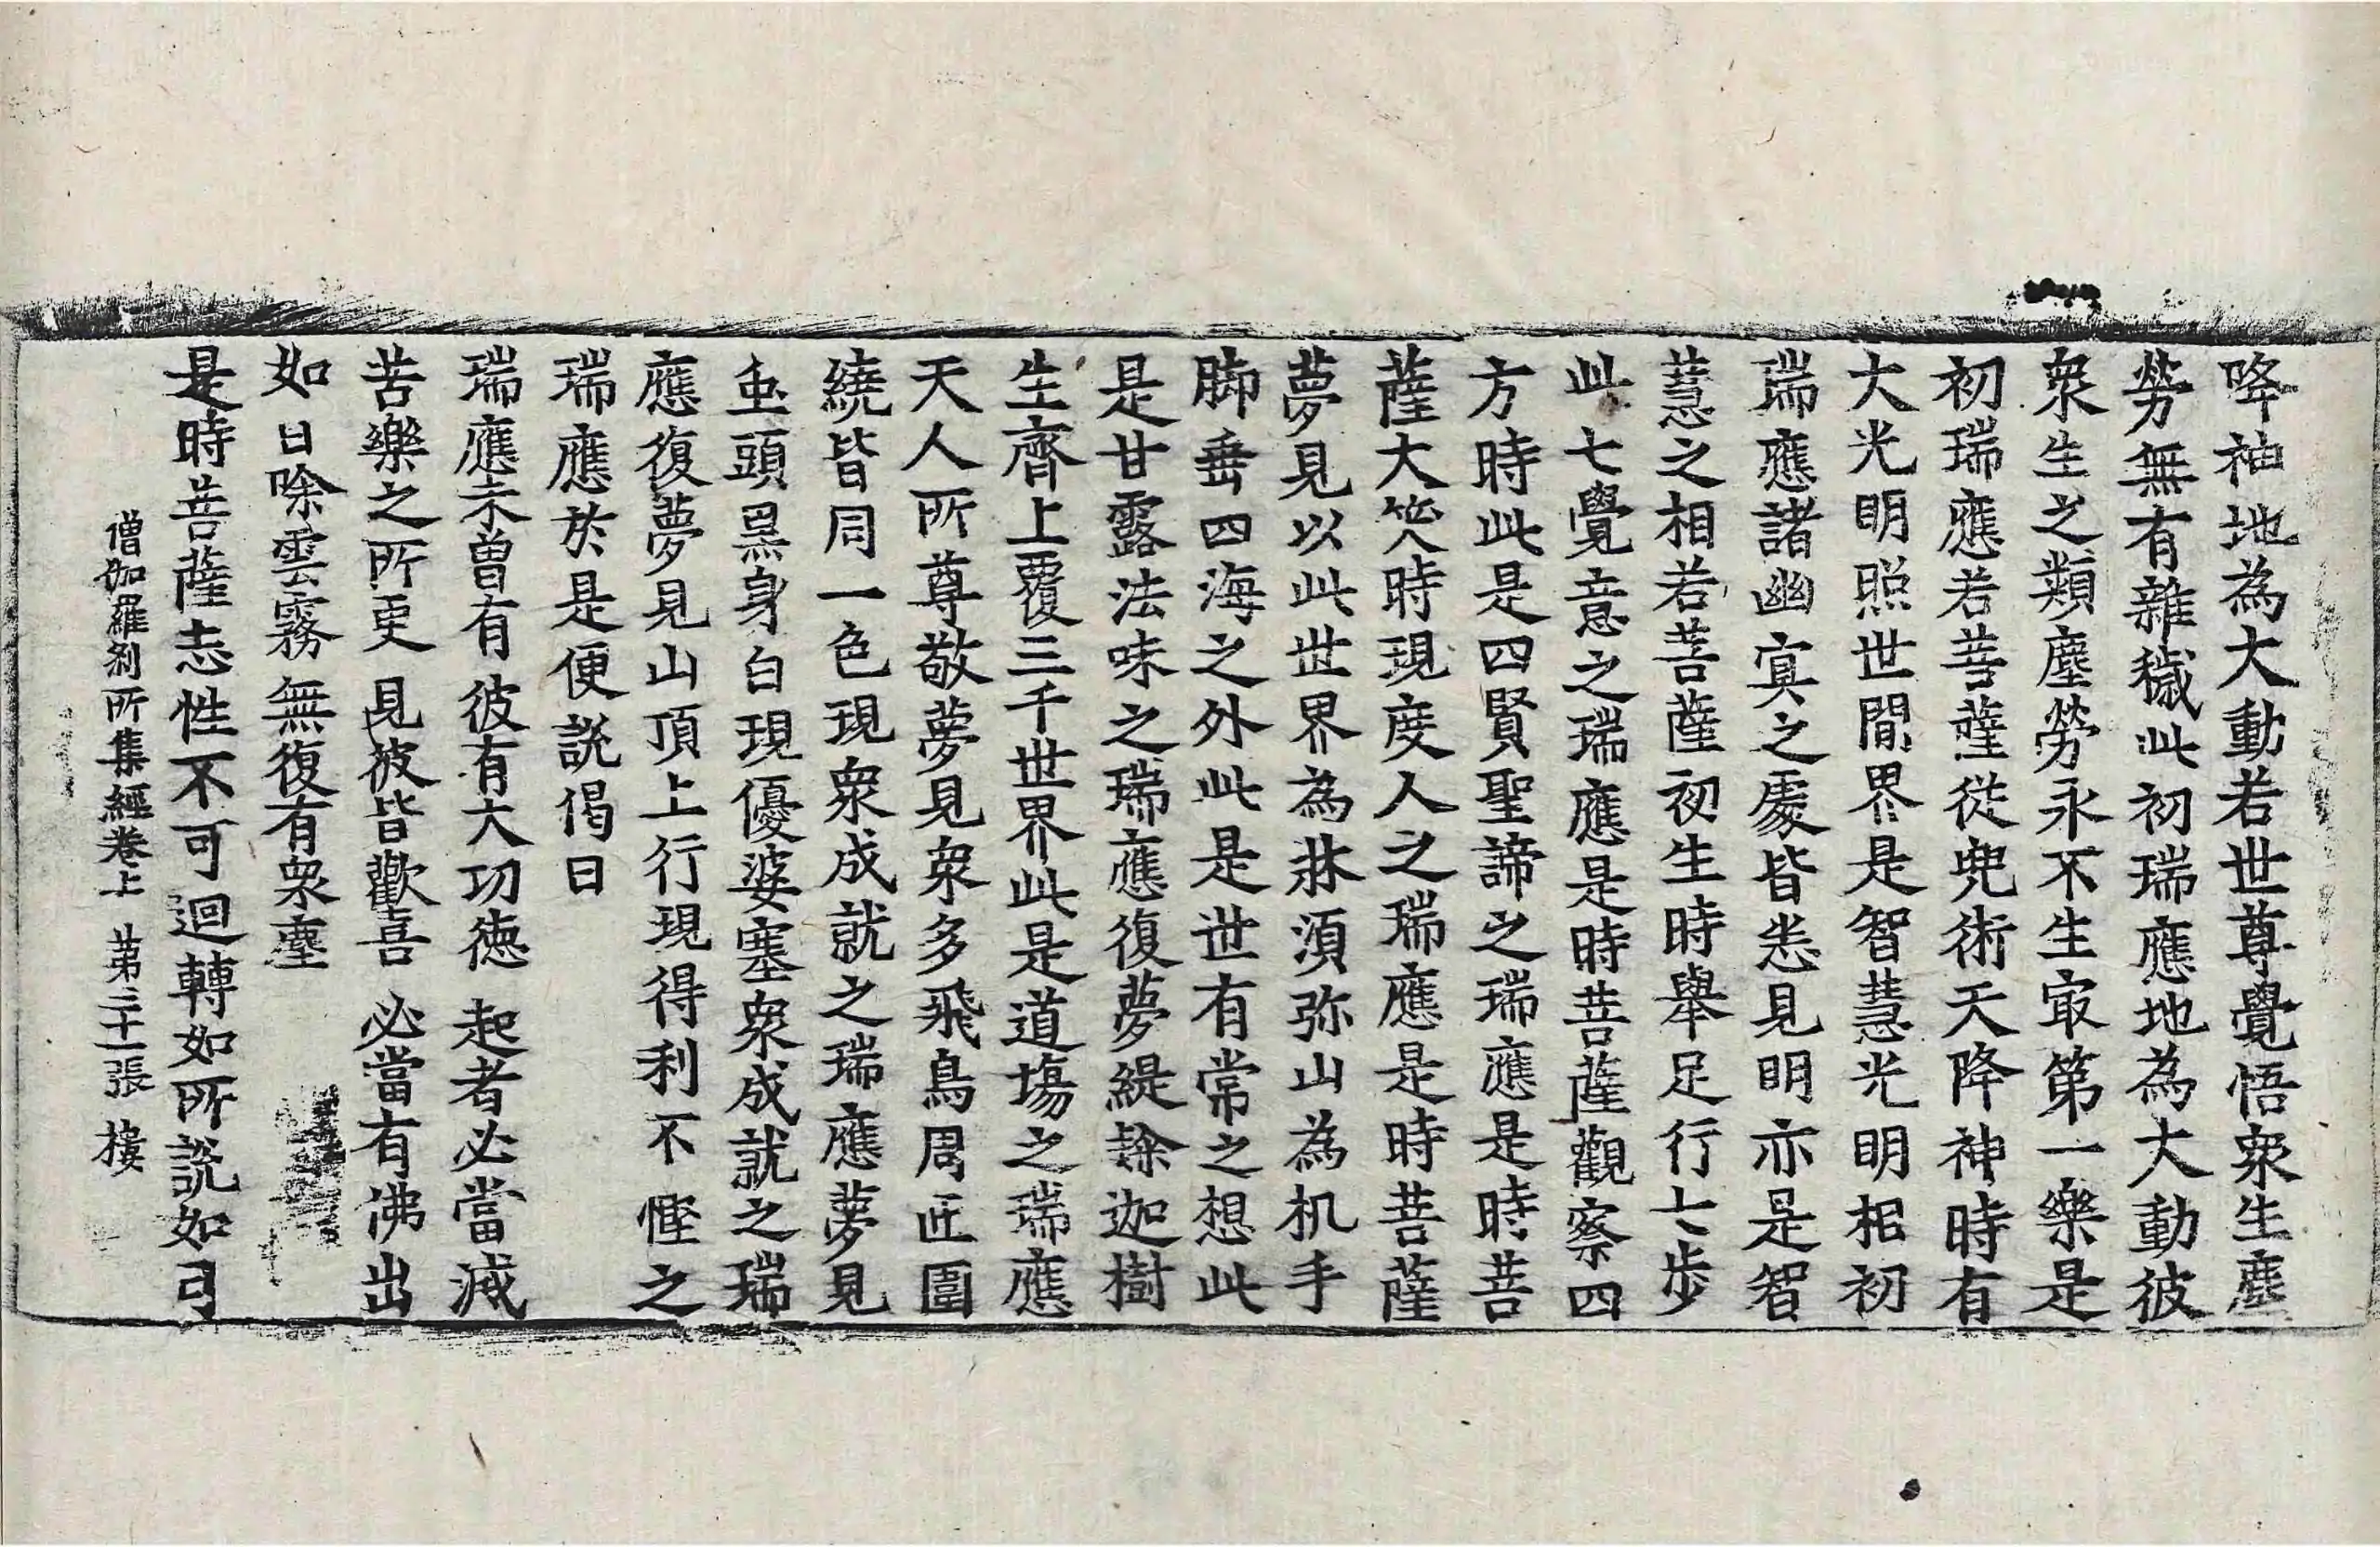 降神地為大動若世尊覺悟衆生塵
勞無有雜穢此初瑞應地為大動彼
衆生之類塵勞永不生冣第一樂是
初瑞應若菩薩從兜術天降神時有
大光明照世間界是智慧光明相初
瑞應諸幽冥之處皆悉見明亦是智
慧之相若菩薩初生時舉足行七步
此七覺意之瑞應是時菩薩觀察四
方時此是四賢聖諦之瑞應是時菩
薩大笑時現度人之瑞應是時菩薩
夢見以此世界為牀須弥山為机手
脚垂四海之外此是世有常之想此
是甘露法味之瑞應復夢緹䅵迦樹
生齊上覆三千世界此是道場之瑞應
天人所尊敬夢見衆多飛鳥周匝圍
繞皆同一色現衆成就之瑞應夢見
虫頭黒身白現優婆塞衆成就之瑞
應復夢見山頂上行現得利不慳之
瑞應於是便說偈曰
瑞應未曾有　彼有大功德　起者必當滅
苦樂之所更　見彼皆歡喜　必當有沸出
如日除雲霧　無復有衆塵
是時菩薩志性不可迴轉如所說如弓
僧伽羅刹所集經卷上　第三十一張　樓